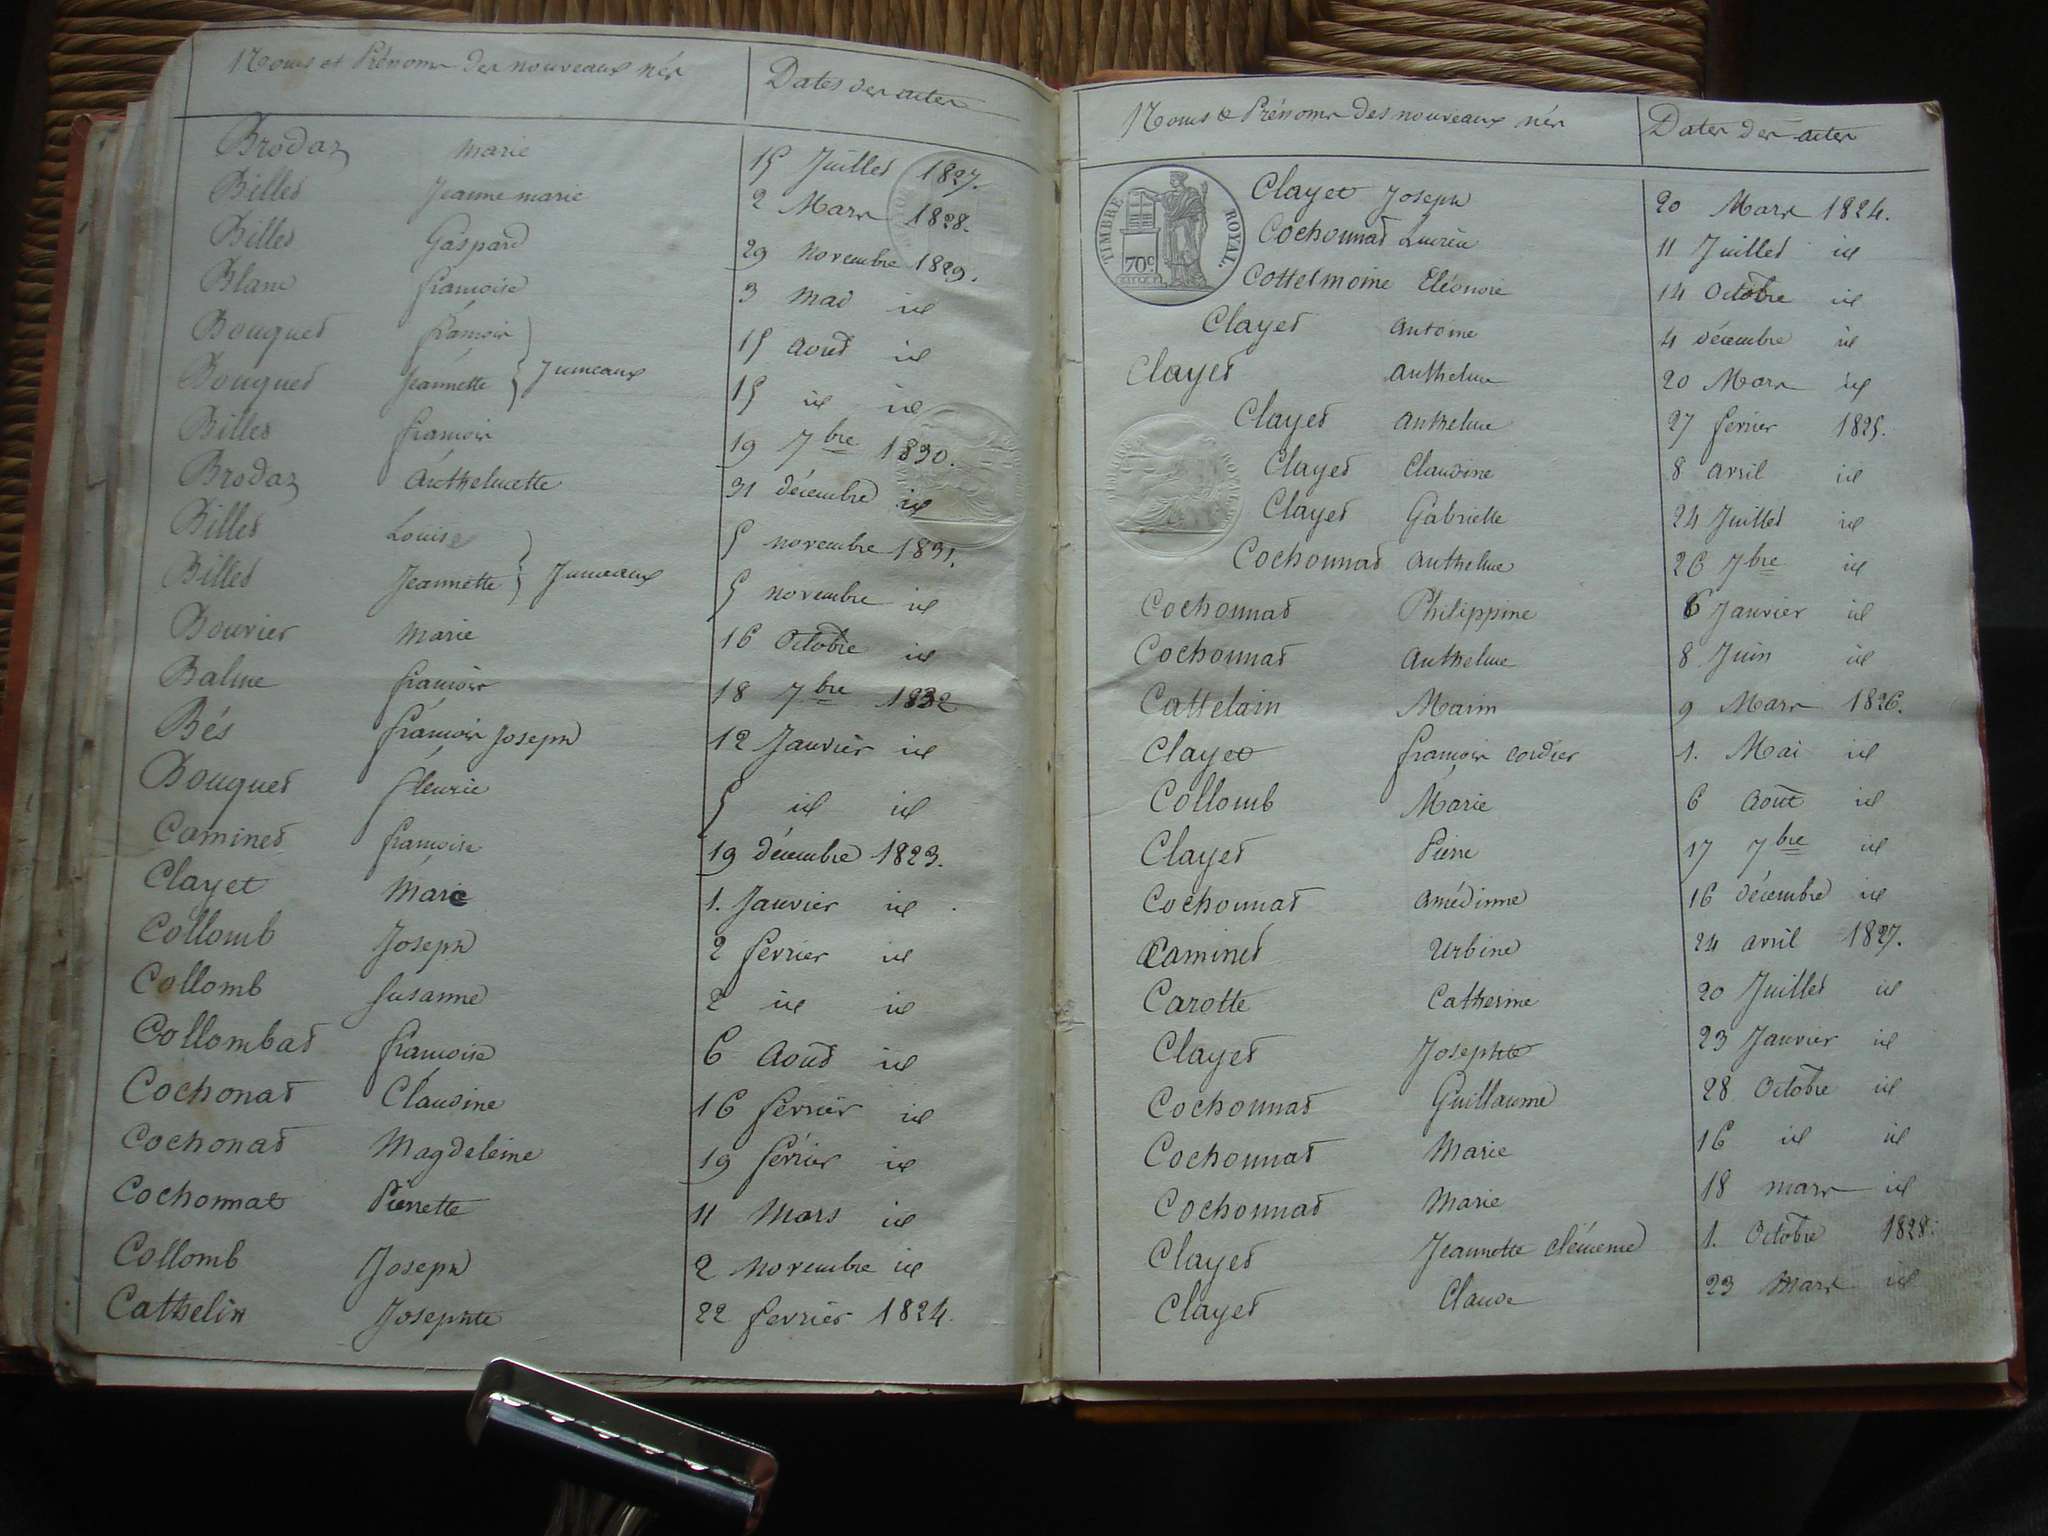 Noms et Prénoms des nouveaux nés Dates des actes
Brodaz Marie 15 Juillet 1827.
Billet Jeanne marie 2 Mars 1828.
Billet Gaspard 29 novembre 1829.
Blanc françoise 3 mai id
Bouquet françois 15 aout id
Bouquet Jeannette Jumeaux 15 id id
Billet françois 19 7bre 1830.
Brodaz Anthelmette 31 décembre id
Billet Louise 5 novembre 1831.
Billet Jeannette Jumeaux 5 novembre id
Bouvier Marie 16 Octobre id
Balme françois 18 7bre 1832
Bés françois Joseph 12 Janvier id
Bouquet fleurie 5 id id
Caminet françoise 19 décembre 1823.
Clayet Marie 1. Janvier id
Collomb Joseph 2 fevrier id
Collomb Susanne 2 id id
Collombat françoise 6 Aout id
Cochonat Claudine 16 fevrier id
Cochonat Magdeleine 19 février id
Cochonnat Pierrette 11 Mars id
Collomb Joseph 2 Novembre id
Cathelin Josephte 22 fevrier 1824.
Noms & Prénoms des nouveaux nés Dates des actes
TIMBRE ROYAL.
70c
Clayet Joseph 20 Mars 1824.
Cochonnat Lucrèce 11 Juillet id
Cottetmoine Eléonore 14 Octobre id
Clayet antoine 4 décembre id
Clayet anthelme 20 Mars id
Clayet anthelme 27 fevrier 1825.
Clayet Claudine 8 avril id
Clayet Gabrielle 24 Juillet id
Cochonnat anthelme 26 7bre id
Cochonnat Philippine 6 Janvier id
Cochonnat anthelme 8 Juin id
Cattelain Marin 9 Mars 1826.
Clayet françois cordier 1. Mai id
Collomb Marie 6 Août id
Clayet Pierre 17 7bre id
Cochonnat amédinne 16 décembre id
Caminet Urbine 24 avril 1827.
Carotte Catherine 20 Juillet id
Clayet Josephte 23 Janvier id
Cochonnat Guillaume 28 Octobre id
Cochonnat Marie 16 id id
Cochonnat Marie 18 mars id
Clayet Jeannette clémence 1. Octobre 1828.
Clayet Claude 23 Mars id